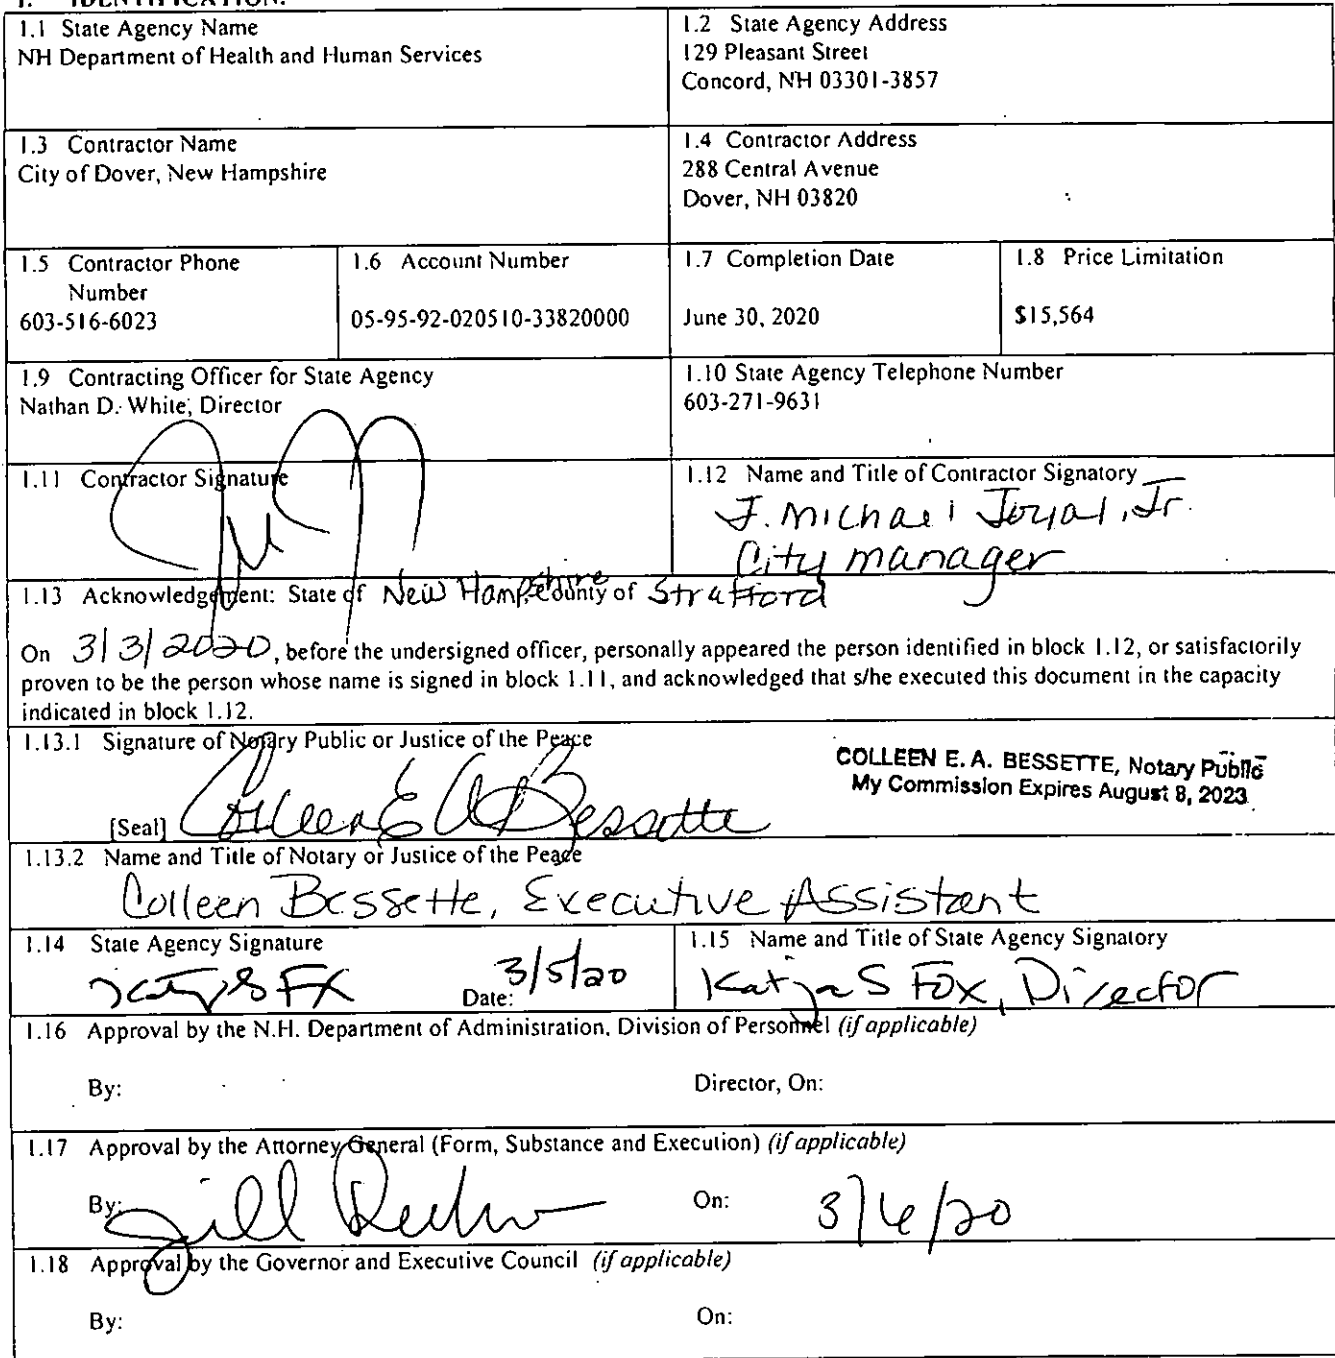 1. IDENTIFICATION.
1.1 State Agency Name
NH Department of Health and Human Services
1.2 State Agency Address
129 Pleasant Street
Concord, NH 03301-3857
1.3 Contractor Name
City of Dover, New Hampshire
1.4 Contractor Address
288 Central Avenue
Dover, NH 03820
1.5 Contractor Phone
Number
603-516-6023
1.6 Account Number
05-95-92-020510-33820000
1.7 Completion Date
June 30, 2020
1.8 Price Limitation
$15,564
1.9 Contracting Officer for State Agency
Nathan D. White, Director
1.10 State Agency Telephone Number
603-271-9631
1.11 Contractor Signature
1.12 Name and Title of Contractor Signatory
J. Michael Joyal, Jr.
City manager
1.13 Acknowledgement: State of New Hampshire County of Strafford
On 3/3/2020, before the undersigned officer, personally appeared the person identified in block 1.12, or satisfactorily
proven to be the person whose name is signed in block 1.11, and acknowledged that s/he executed this document in the capacity
indicated in block 1.12.
1.13.1 Signature of Notary Public or Justice of the Peace
COLLEEN E. A. BESSETTE, Notary Public
My Commission Expires August 8, 2023
[Seal] Colleen E A Bessette
1.13.2 Name and Title of Notary or Justice of the Peace
Colleen Bessette, Executive Assistant
1.14 State Agency Signature
Date: 3/5/20
1.15 Name and Title of State Agency Signatory
Katja S Fox, Director
1.16 Approval by the N.H. Department of Administration, Division of Personnel (if applicable)
By:
Director, On:
1.17 Approval by the Attorney General (Form, Substance and Execution) (if applicable)
By: Jill
On: 3/6/20
1.18 Approval by the Governor and Executive Council (if applicable)
By:
On: